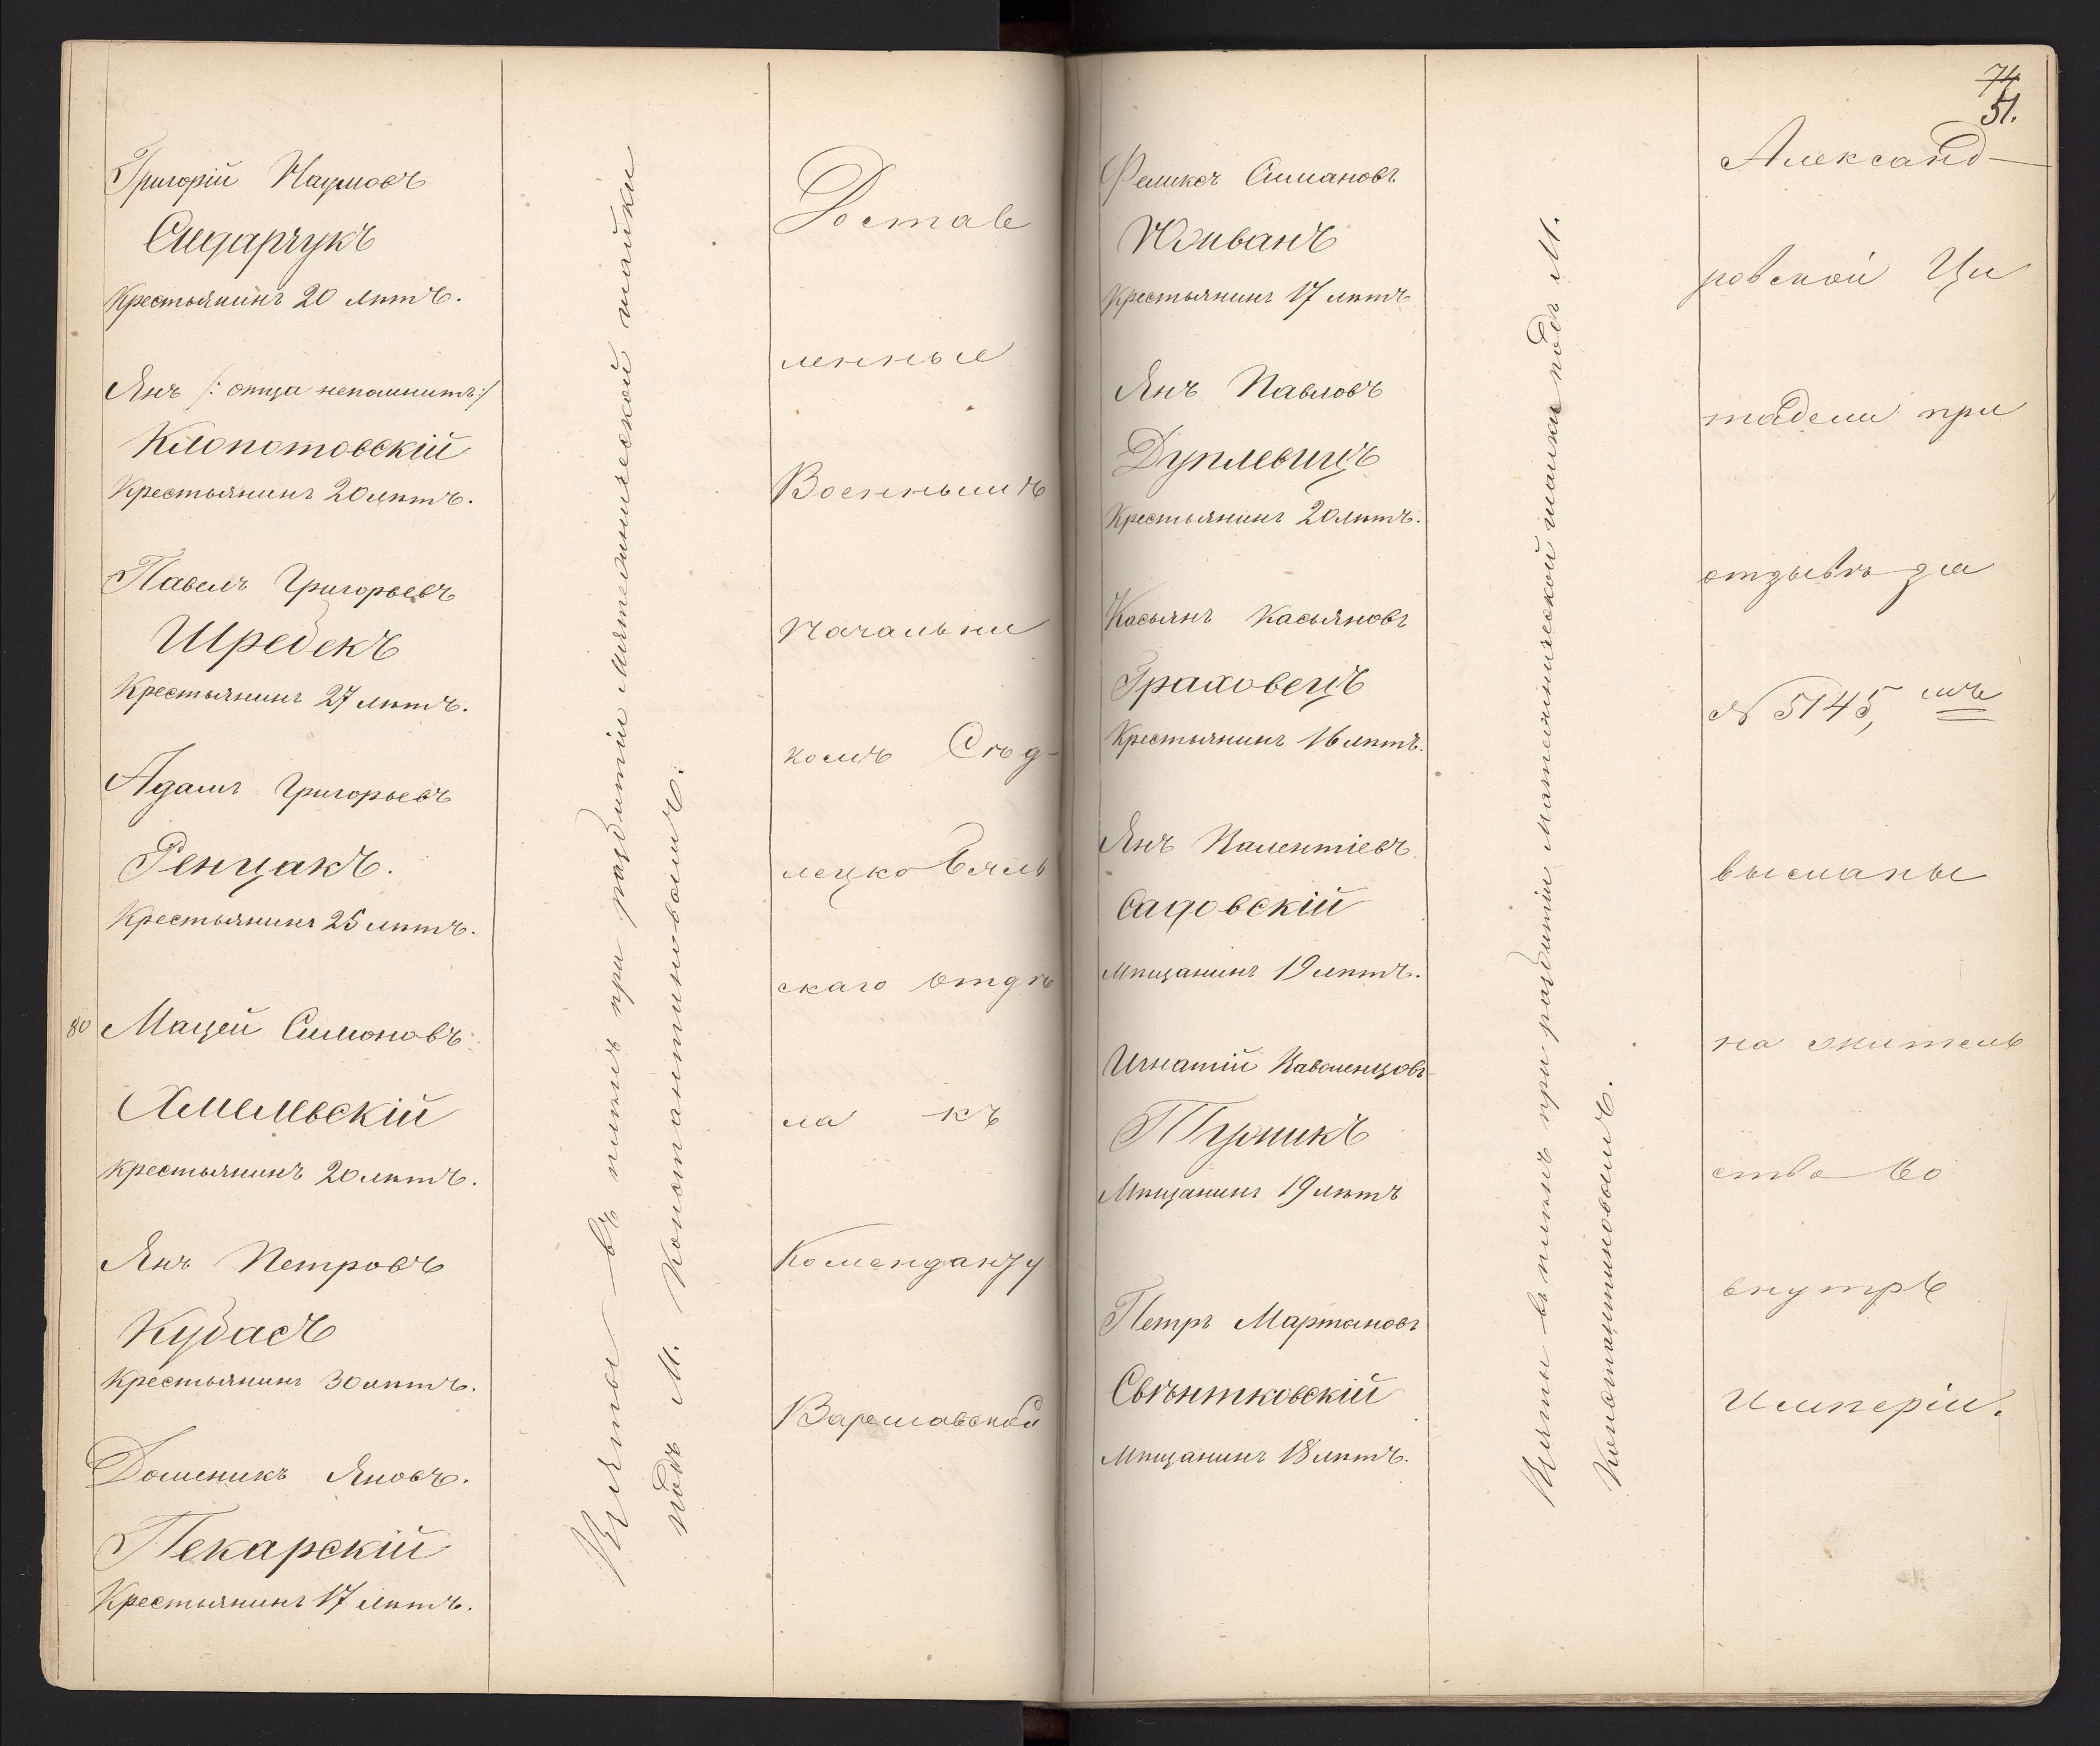 Григорій Наумовъ
Сидарчукъ
Крестьянинъ 20 лѣтъ.
Янъ /: отца непомнитъ :/
Клопотовскій
Крестьянинъ 20 лѣтъ.
Павелъ Григорьевъ
Шредекъ
Крестьянинъ 27 лѣтъ.
Адамъ Григорьевъ
Ренцакъ.
Крестьянинъ 25 лѣтъ.
80 Мацей Симоновъ
Хмѣлевскій
Крестьянинъ 20 лѣтъ.
Янъ Петровъ
Кубасъ
Крестьянинъ 30 лѣтъ.
Доменикъ Яновъ.
Пекарскій
Крестьянинъ 17 лѣтъ.
Взяты въ плѣнъ при разбитіи Мятежнической шайки
подъ М. Константиновомъ.
Достав
ленные
Военнымъ
Начальни
комъ Сѣд-
лецко Бяль
скаго отдѣ
ла къ
Коменданту
Варшавской
74
51.
Феликсъ Симановъ
Крестьянинъ 17 лѣтъ
Янъ Павловъ
Дуплевичъ
Крестьянинъ 20 лѣтъ.
Касьянъ Касьяновъ
Граховецъ
Крестьянинъ 16 лѣтъ.
Янъ Валентіевъ
Садовскій
Мѣщанинъ 19 лѣтъ.
Игнатій
Мѣщанинъ 19 лѣтъ
Петръ Мартановъ
Свѣнтковскій
Мѣщанинъ 18 лѣтъ.
Взяты въ плѣнъ при разбитіи Мятежнической шайки подъ М.
Константиновомъ.
Александ-
ровской Ци
тадели при
отзывѣ за
№ 5145,
высланы
на житель
ство во
внутрь
Имперіи.